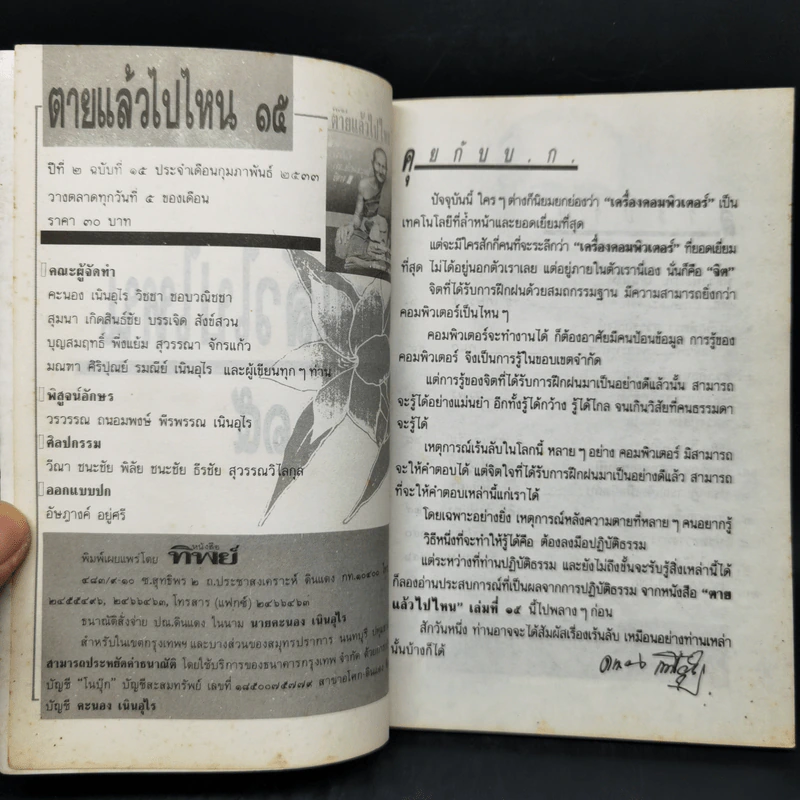 ตายแล้วไปไหน ๑๕
ปีที่ ๒ ฉบับที่ ๑๕ ประจำเดือนกุมภาพันธ์ ๒๕๓๓
วางตลาดทุกวันที่ ๕ ของเดือน
ราคา ๓๐ บาท
คณะผู้จัดทำ
คะนอง เนินอุไร วิชชา ชอบวณิชชา
สุมนา เกิดสินธ์ชัย บรรเจิด สังข์สวน
บุญสมฤทธิ์ พึ่งแย้ม สุวรรณา จักรแก้ว
มณฑา ศิริปุณย์ รมณีย์ เนินอุไร และผู้เขียนทุก ๆ ท่าน
พิสูจน์อักษร
วรวรรณ ถนอมพงษ์ พีรพรรณ เนินอุไร
ศิลปกรรม
วีณา ชนะชัย พิลัย ชนะชัย ธีรชัย สุวรรณวิไลกุล
ออกแบบปก
อัษฎางค์ อยู่ศรี
พิมพ์เผยแพร่โดย หนังสือ ทิพย์
๔๘๓/๙-๑๐ ซ.สุทธิพร ๒ ถ.ประชาสงเคราะห์ ดินแดง กท.๑๐๔๐๐
๒๔๕๕๔๙๖, ๒๔๖๖๔๖๓, โทรสาร (แฟกซ์) ๒๔๖๖๔๖๓
ธนาณัติสั่งจ่าย ปณ.ดินแดง ในนาม นายคะนอง เนินอุไร
สำหรับในเขตกรุงเทพฯ และบางส่วนของสมุทรปราการ นนทบุรี
สามารถประหยัดค่าธนาณัติ โดยใช้บริการของธนาคารกรุงเทพ จำกัด
บัญชี "โนบุ๊ก" บัญชีสะสมทรัพย์ เลขที่ ๑๘๕๐๐๗๕๗๗๙ สาขาอโศก-ดินแดง
บัญชี คะนอง เนินอุไร
คุยกับบ.ก.
ปัจจุบันนี้ ใคร ๆ ต่างก็นิยมยกย่องว่า "เครื่องคอมพิวเตอร์" เป็น
เทคโนโลยีที่ล้ำหน้าและยอดเยี่ยมที่สุด
แต่จะมีใครสักกี่คนที่จะระลึกว่า "เครื่องคอมพิวเตอร์" ที่ยอดเยี่ยม
ที่สุด ไม่ได้อยู่นอกตัวเราเลย แต่อยู่ภายในตัวเรานี่เอง นั่นก็คือ "จิต"
จิตที่ได้รับการฝึกฝนด้วยสมถกรรมฐาน มีความสามารถยิ่งกว่า
คอมพิวเตอร์เป็นไหน ๆ
คอมพิวเตอร์จะทำงานได้ ก็ต้องอาศัยมีคนป้อนข้อมูล การรู้ของ
คอมพิวเตอร์ จึงเป็นการรู้ในขอบเขตจำกัด
แต่การรู้ของจิตที่ได้รับการฝึกฝนมาเป็นอย่างดีแล้วนั้น สามารถ
จะรู้ได้อย่างแม่นยำ อีกทั้งรู้ได้กว้าง รู้ได้ไกล จนเกินวิสัยที่คนธรรมดา
จะรู้ได้
เหตุการณ์เร้นลับในโลกนี้ หลาย ๆ อย่าง คอมพิวเตอร์ มิสามารถ
จะให้คำตอบได้ แต่จิตใจที่ได้รับการฝึกฝนมาเป็นอย่างดีแล้ว สามารถ
ที่จะให้คำตอบเหล่านี้แก่เราได้
โดยเฉพาะอย่างยิ่ง เหตุการณ์หลังความตายที่หลาย ๆ คนอยากรู้
วิธีหนึ่งที่จะทำให้รู้ได้คือ ต้องลงมือปฏิบัติธรรม
แต่ระหว่างที่ท่านปฏิบัติธรรม และยังไม่ถึงขั้นจะรับรู้สิ่งเหล่านี้ได้
ก็ลองอ่านประสบการณ์ที่เป็นผลจากการปฏิบัติธรรม จากหนังสือ "ตาย
แล้วไปไหน" เล่มที่ ๑๕ นี้ไปพลาง ๆ ก่อน
สักวันหนึ่ง ท่านอาจจะได้สัมผัสเรื่องเร้นลับ เหมือนอย่างท่านเหล่า
นั้นบ้างก็ได้